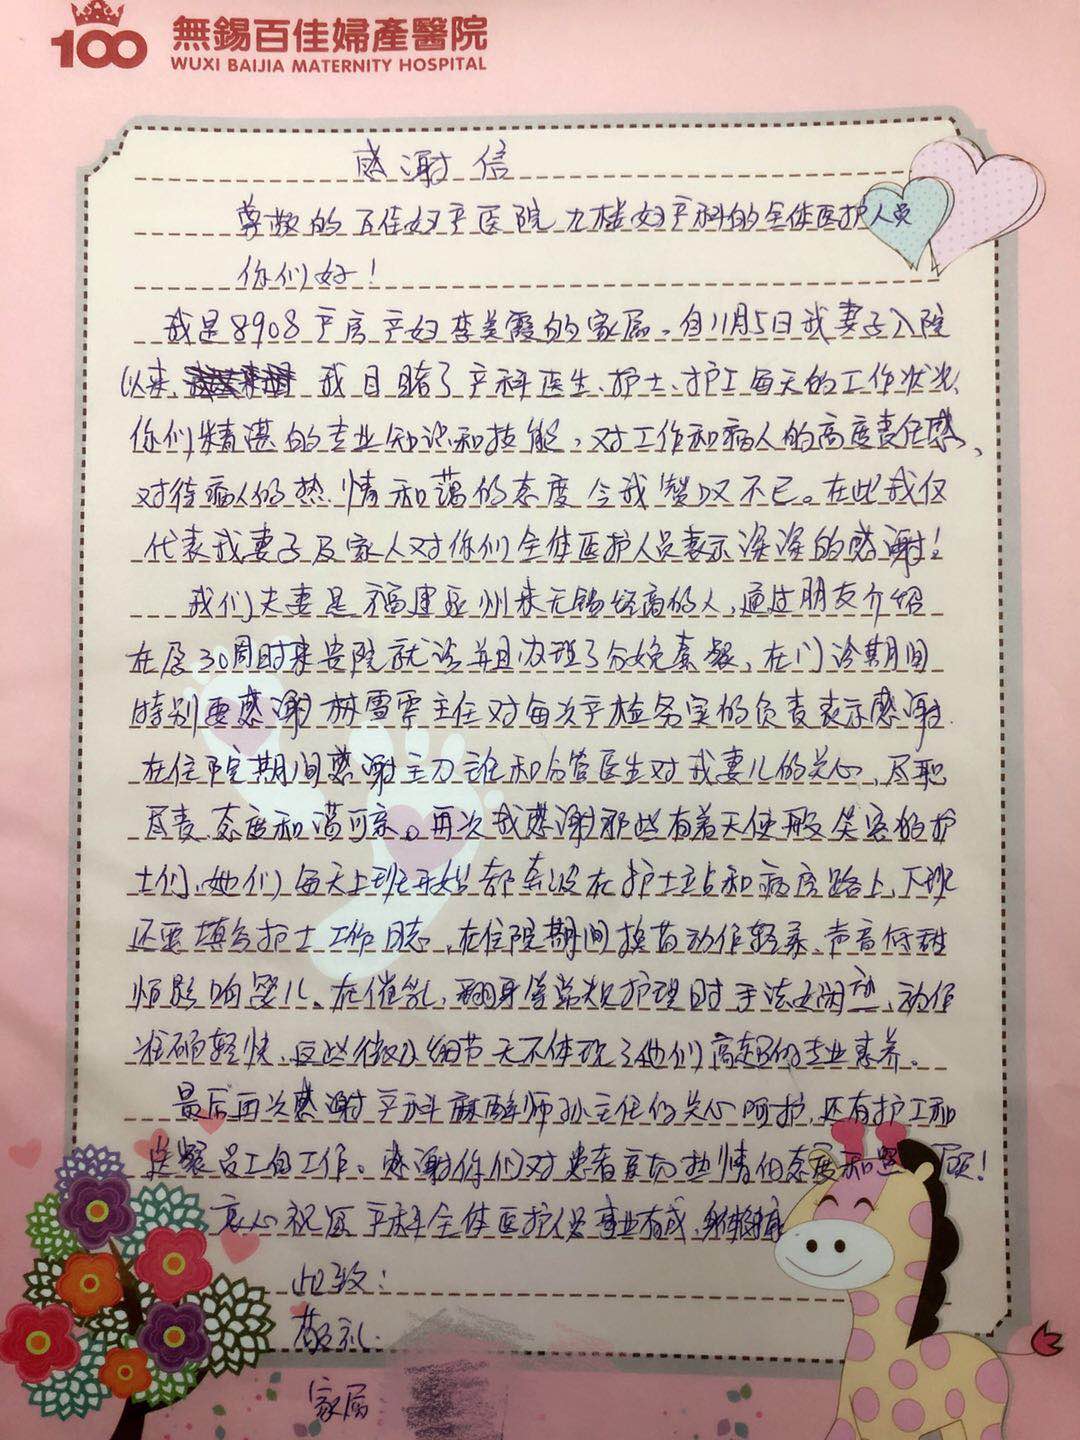 100 無錫百佳婦產醫院
WUXI BAIJIA MATERNITY HOSPITAL
感谢信
尊敬的百佳妇产医院九楼妇产科的全体医护人员
你们好！
我是8908产房产妇李美霞的家属。自11月5日我妻子入院
以来，我目睹了产科医生、护士、护工每天的工作状况，
你们精湛的专业知识和技能，对工作和病人的高度责任感、
对待病人的热情和蔼的态度令我赞叹不已。在此我仅
代表我妻子及家人对你们全体医护人员表示深深的感谢！
我们夫妻是福建 州来无锡经商的人，通过朋友介绍
在孕30周时来贵院就诊并且办理了分娩套餐，在门诊期间
特别要感谢林雪 主任对每次产检务实的负责表示感谢
在住院期间感谢主刀 和分管医生对我妻儿的关心、尽职
尽责、态度和蔼可亲。再次我感谢那些有着天使般笑容的护
士们，她们每天上班开始都奔波在护士站和病房路上，下班
还要填写护士工作日志，在住院期间换药动作轻柔、声音低甜
怕影响婴儿。在催乳，翻身等常规护理时手法 ，动作
准确轻快，这些微小细节无不体现了他们高超的专业素养。
最后再次感谢产科麻醉师孙主任的关心呵护，还有护工和
送餐员工的工作。感谢你们对患者 热情的态度和照顾！
衷心祝愿产科全体医护人员事业有成，身体
此致：
敬礼.
家属